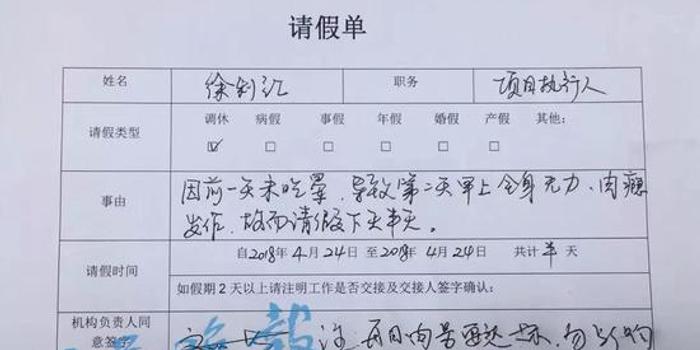 请假单
姓名 徐利江 职务 项目执行人
请假类型 调休 病假 事假 年假 婚假 产假 其他:
☑ □ □ □ □ □
事由 因前一天未吃荤,导致第二天早上全身无力、肉瘾
发作,故而请假下天半天。
请假时间 自2018年4月24日 至2018年4月24日 共计半天
如假期2天以上请注明工作是否交接及交接人签字确认:
机构负责人同
意签字 注 每日肉量要达标,勿